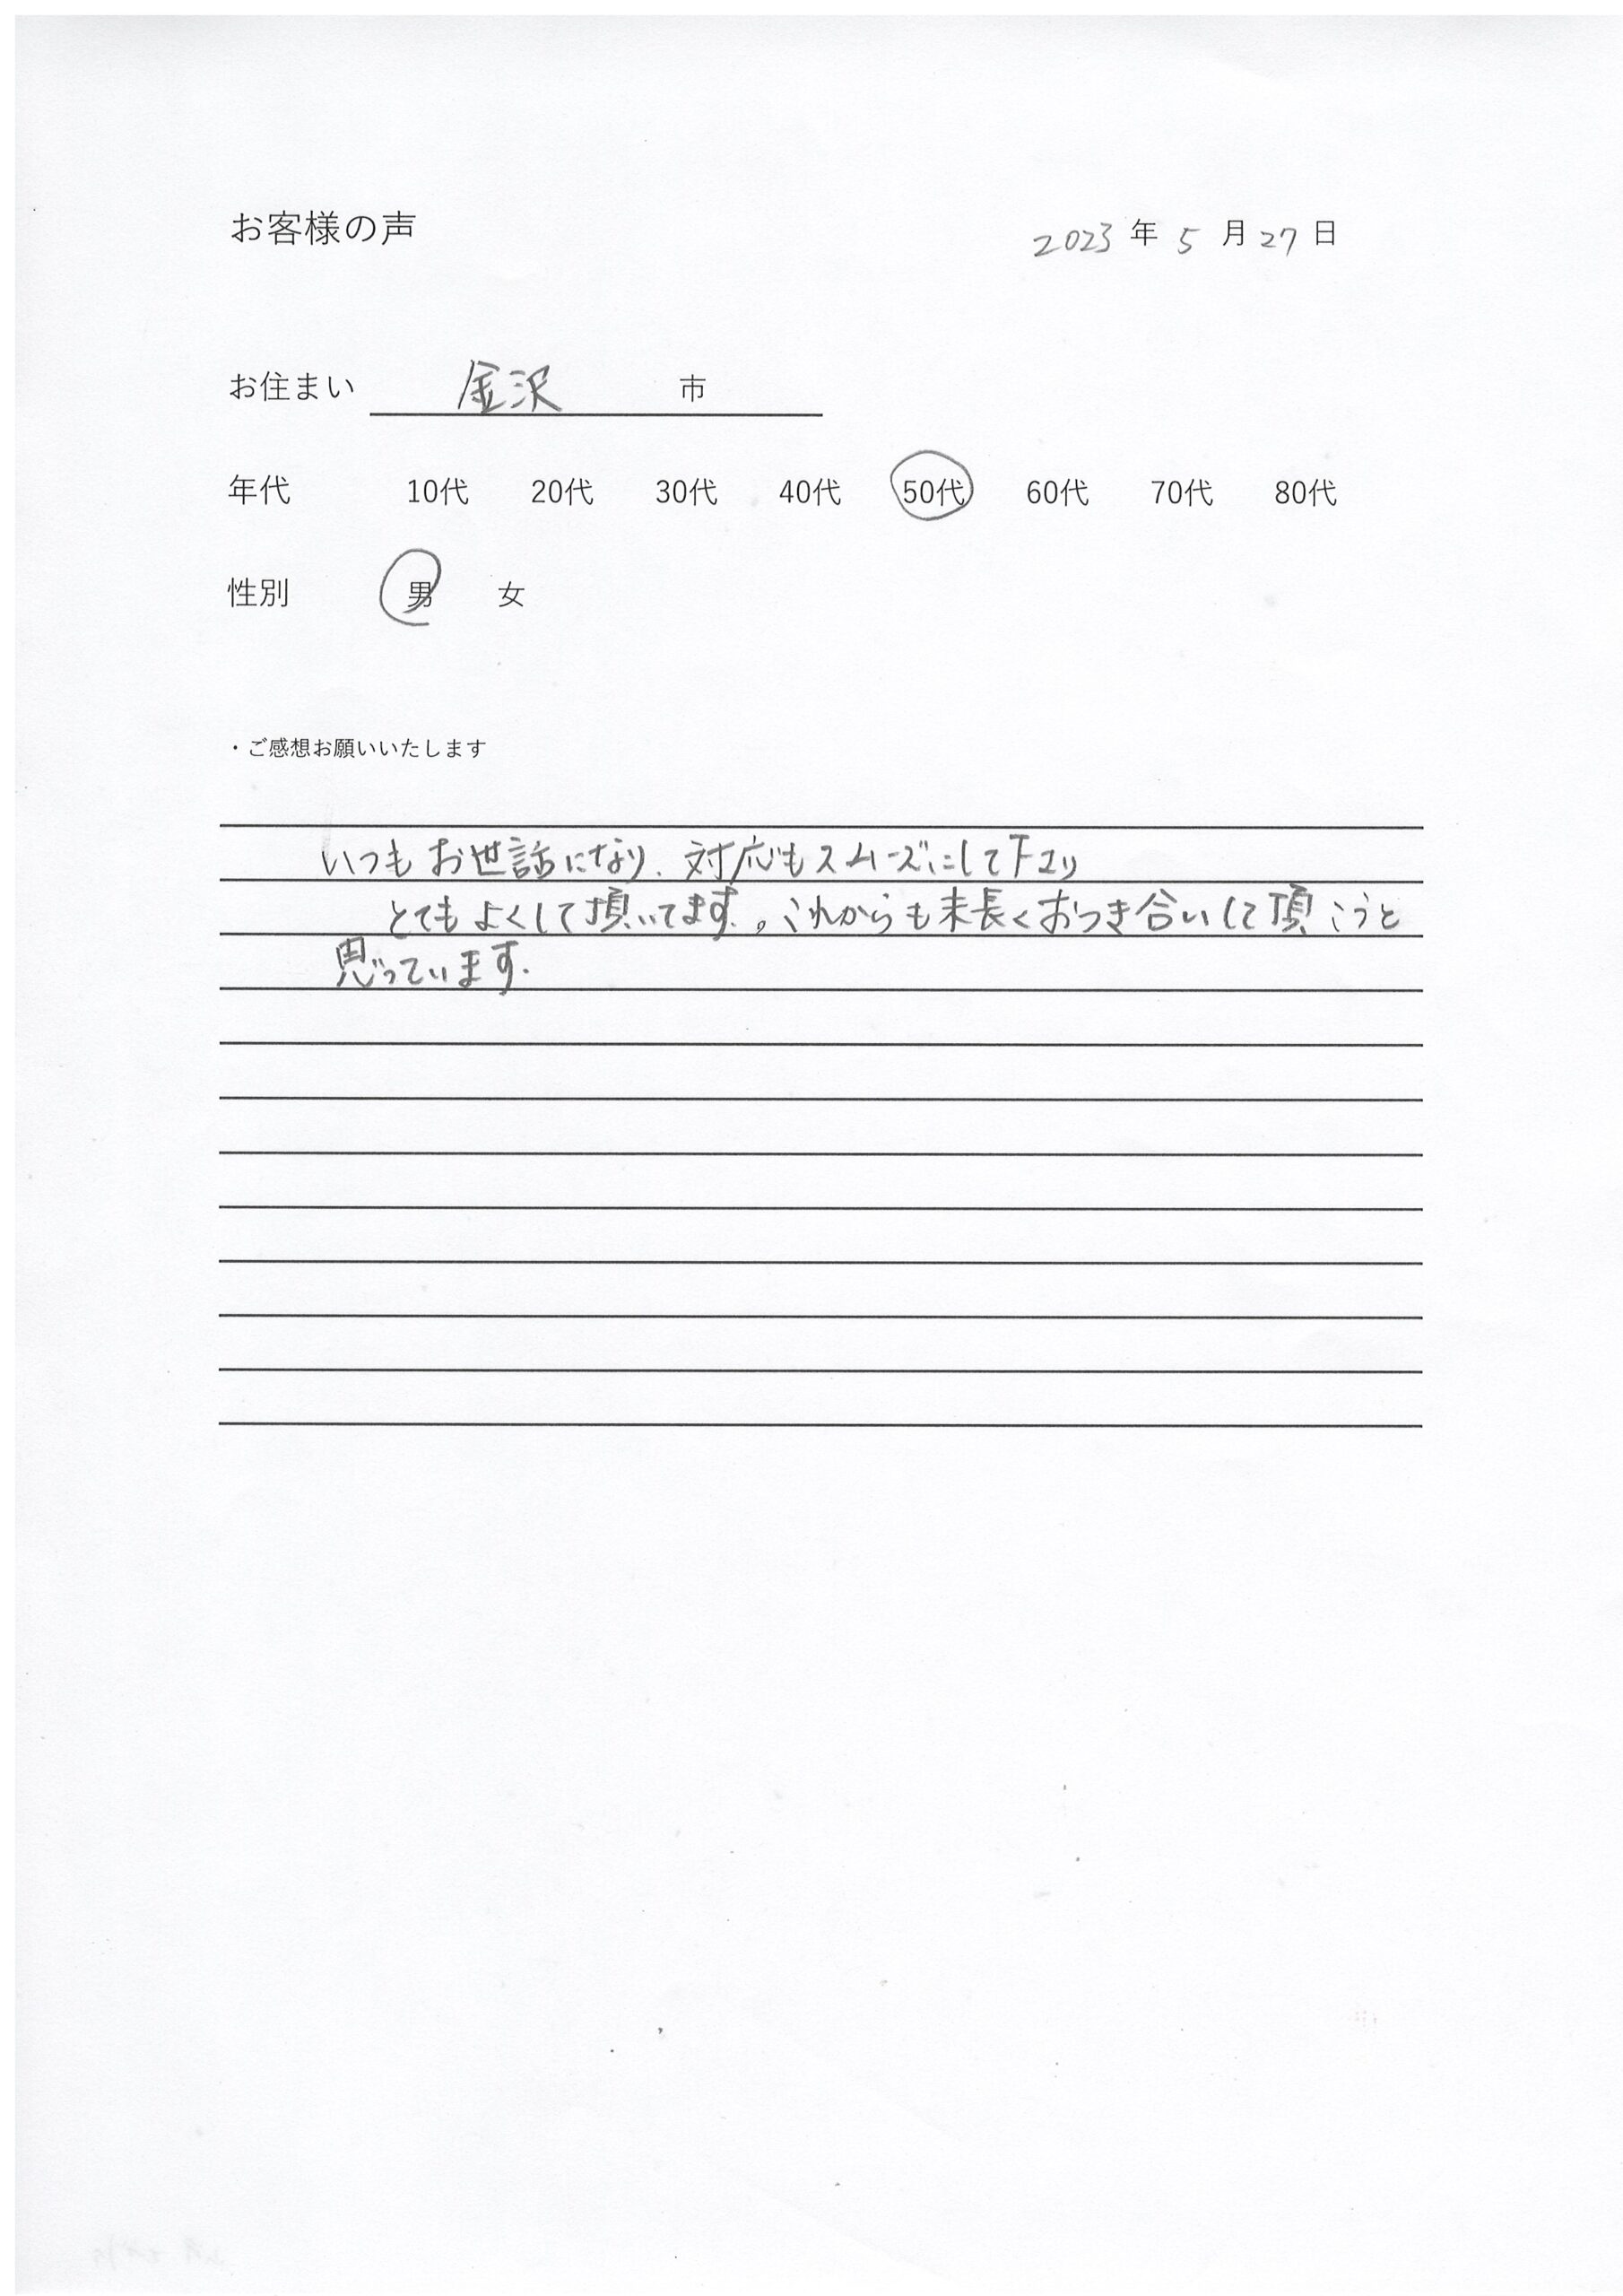 お客様の声
2023 年 5 月 27 日
お住まい 金沢 市
年代 10代 20代 30代 40代 50代 60代 70代 80代
性別 男 女
・ご感想お願いいたします
いつもお世話になり、対応もスムーズにして下さり
とてもよくして頂いてます。これからも末長くおつき合いして頂こうと
思っています.